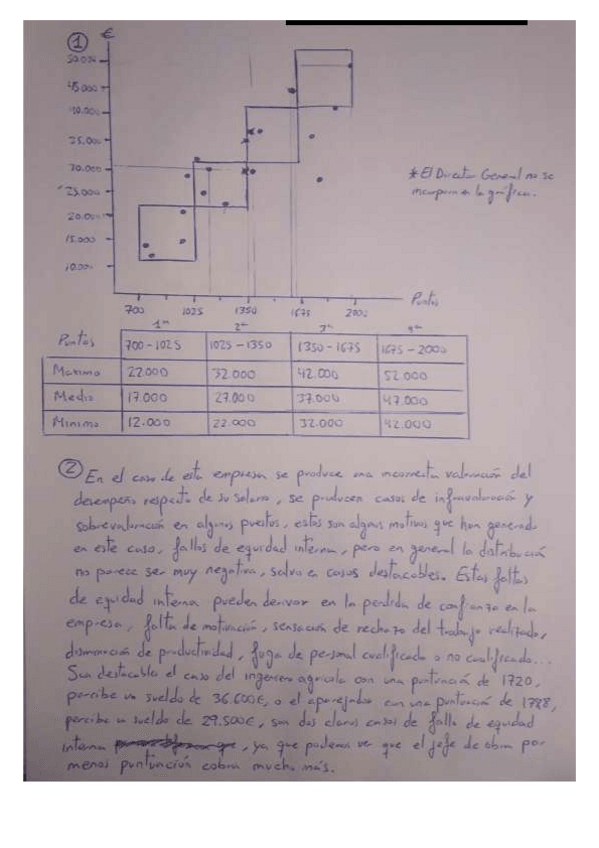 ① €
50.000
45.000
40.000
35.000
30.000
25.000
20.000
15.000
10.000
* El Director General no se
incorpora en la gráfica.
700 1025 1350 1675 2000 Puntos
1ª 2ª 3ª 4ª
Puntos 700-1025 1025-1350 1350-1675 1675-2000
Maximo 22.000 32.000 42.000 52.000
Medio 17.000 27.000 37.000 47.000
Mínimo 12.000 22.000 32.000 42.000
② En el caso de esta empresa se produce una incorrecta valoración del
desempeño respecto de su salario, se producen casos de infravaloración y
sobrevaloración en algunos puestos, estos son algunos motivos que han generado
en este caso, fallos de equidad interna, pero en general la distribución
no parece ser muy negativa, salvo en casos destacables. Estas faltas
de equidad interna pueden derivar en la perdida de confianza en la
empresa, falta de motivación, sensación de rechazo del trabajo realizado,
disminución de productividad, fuga de personal cualificado o no cualificado...
Sea destacable el caso del ingeniero agricola con una puntuación de 1720,
percibe un sueldo de 36.600€, o el aparejador con una puntuación de 1788,
percibe un sueldo de 29.500€, son dos claros casos de fallo de equidad
interna, ya que podemos ver que el jefe de obra por
menos puntuación cobra mucho más.